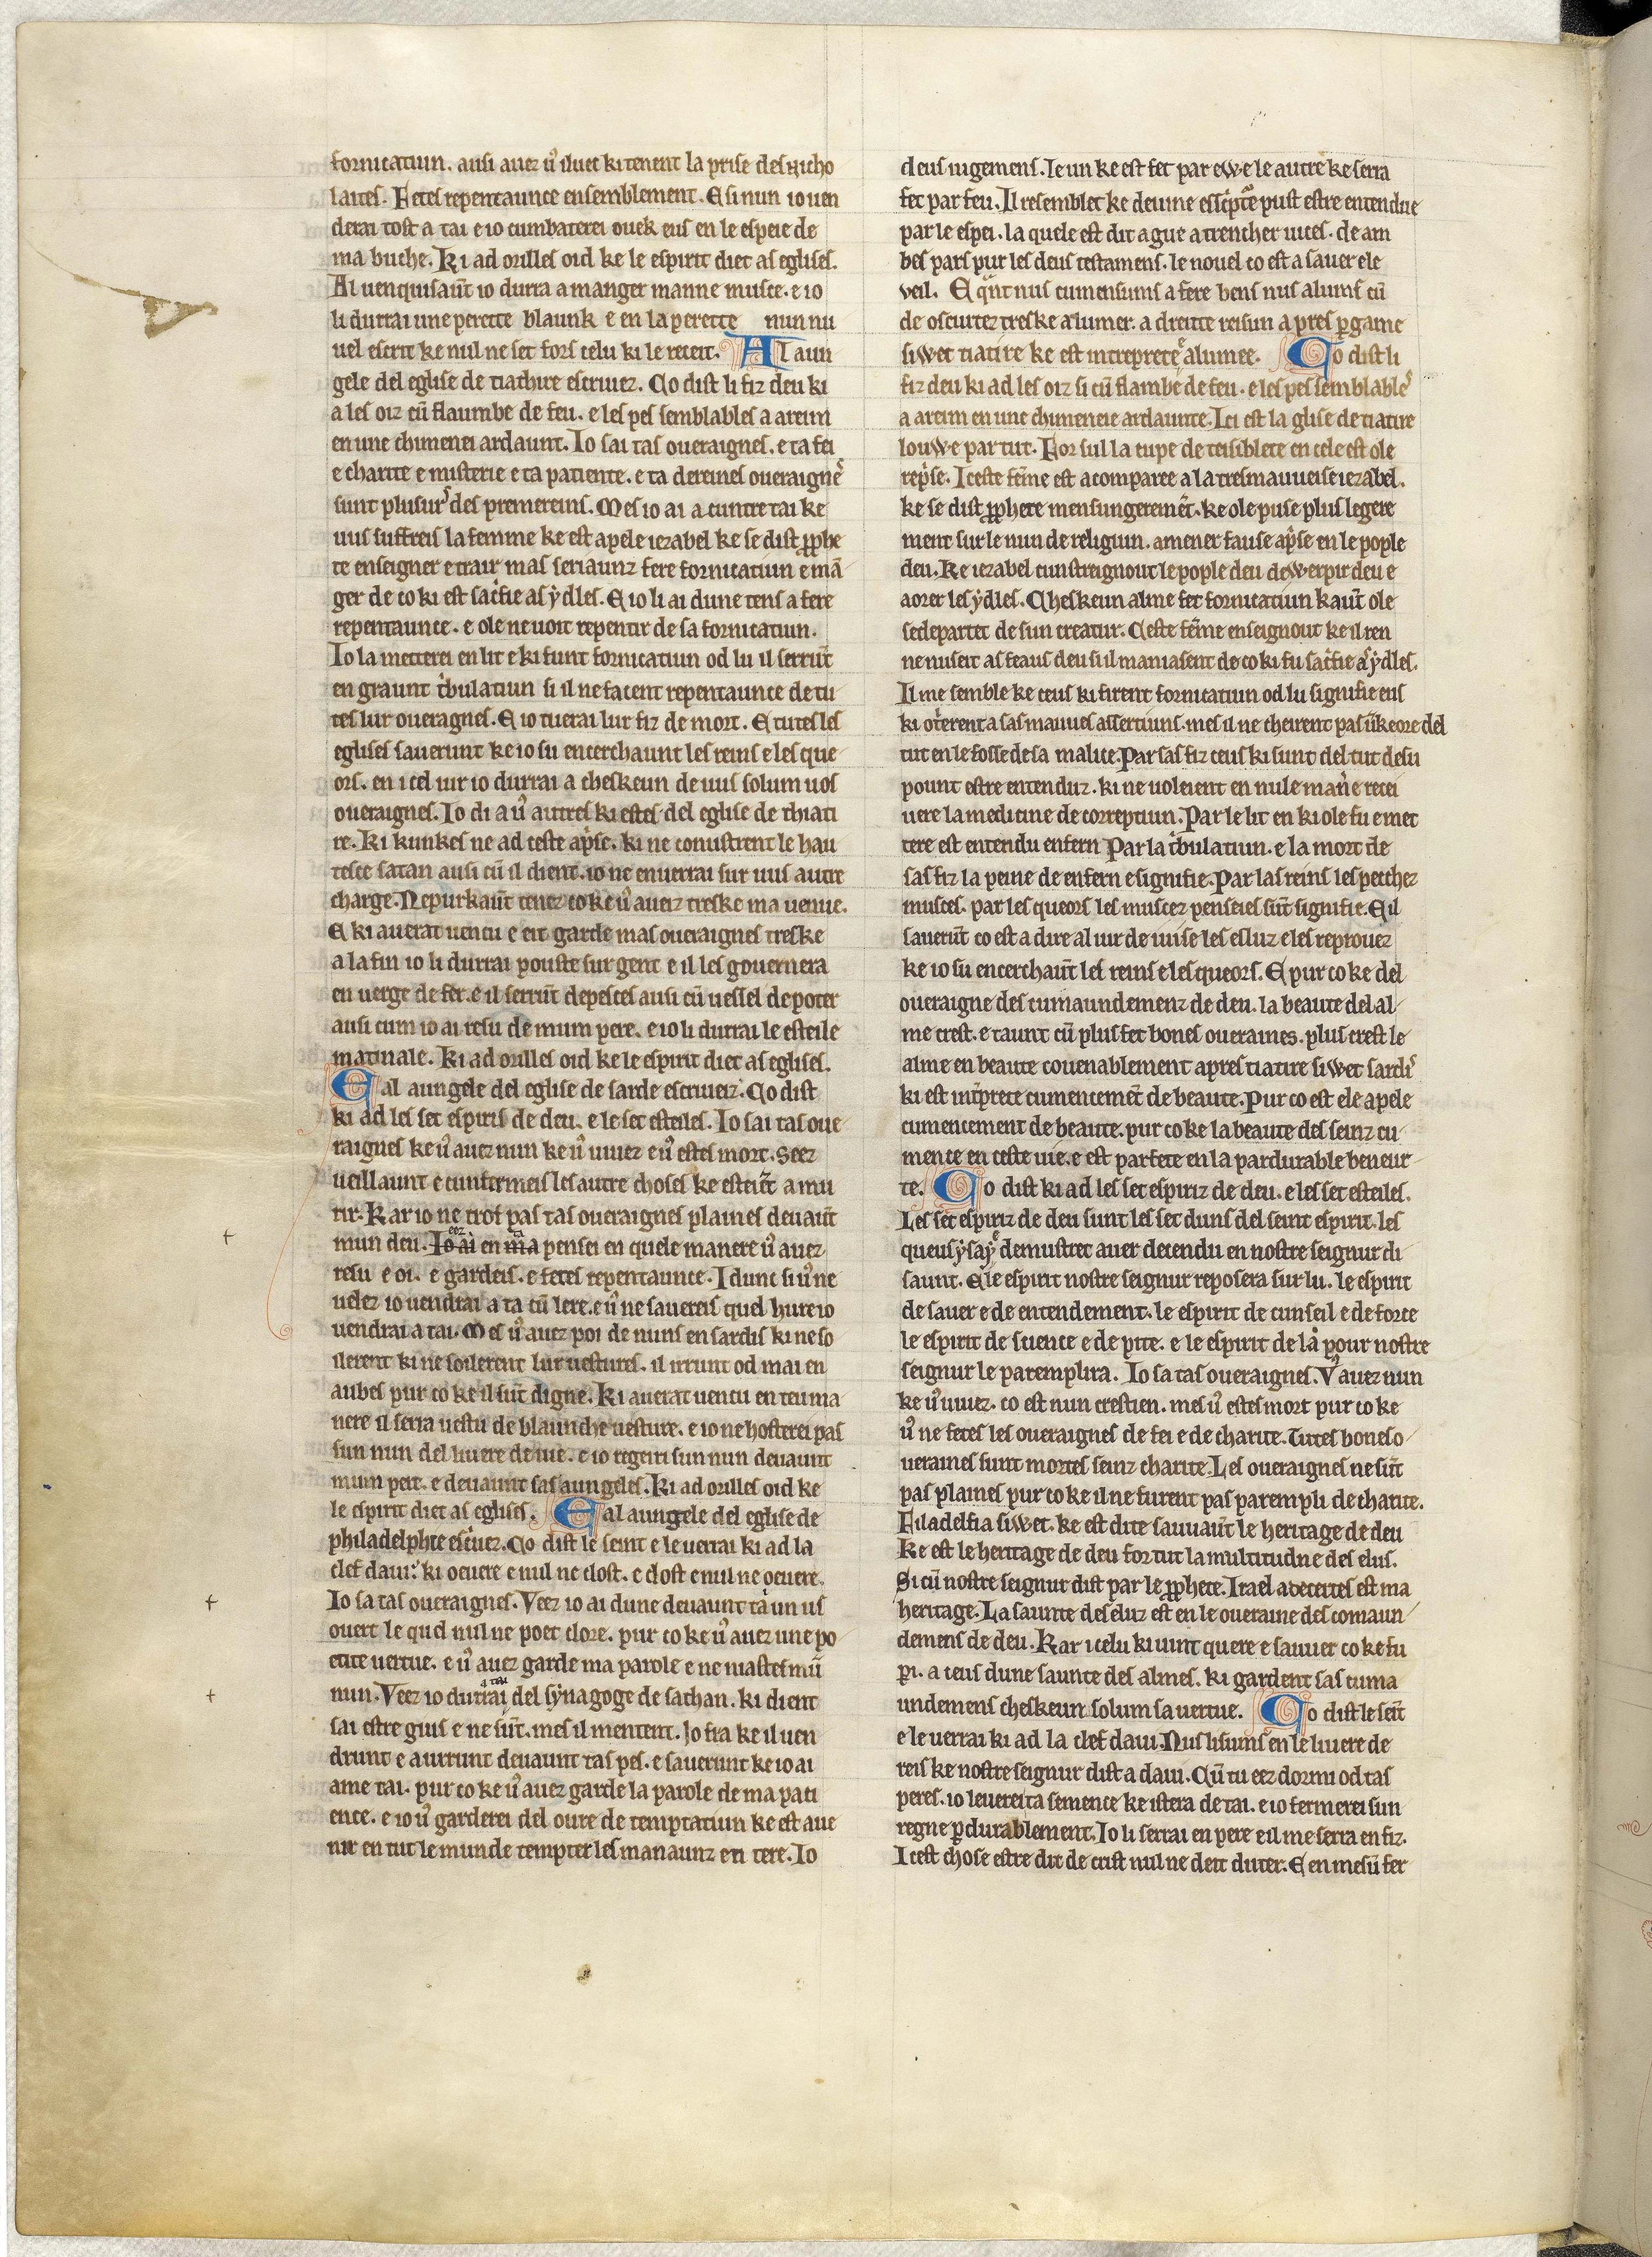 fornicatiun. ausi auez ū iluec ki tenent la prise des nicho
laites. Fetes repentaunce ensemblement. E si nun io uen
derai tost a tai e io cumbaterei ouek eus en le espeie de
ma buche. Ki ad orilles oid ke le espirit diet as eglises.
Al uenquisaūt io durra a manger manne musce. e io
li durrai une perette blaunk e en la perette nun nu
uel escrit ke nul ne set fors celu ki le receit. Al aun
gele del eglise de tiachire escriuez. Co dist li fiz deu ki
a les oiz cū flaumbe de feu. e les pes semblables a areim
en une chimenei ardaunt. Io sai tas oueraignes. e ta fei
e charite e misterie e ta patiente. e ta dereines oueraigne
sunt plusur des premereins. Mes io ai a cuntre tai ke
uus suffreis la femme ke est apele iezabel ke se dist pphe
te enseigner e trair mas seriaunz fere fornicatiun e mā
ger de co ki est sacfie as ydles. E io li ai dune tens a fere
repentaunce. e ole ne uoit repentir de sa fornicatiun.
Io la metterei en lit e ki funt fornicatiun od lu il serrūt
en graunt tbulatiun si il ne facent repentaunce de tu
tes lur oueragnes. E io tuerai lur fiz de mort. E tutes les
eglises sauerunt ke io su encerchaunt les reins e les que
ors. en icel iur io durrai a cheskeun de uus solum uos
oueraignes. Io di a ū autres ki estes del eglise de thiati
re. Ki kunkes ne ad ceste apse. ki ne conustrent le hau
tesce satan ausi cū il dient. io ne enuerrai sur uus autre
charge. Nepurkaūt tenez co ke ū aueiz treske ma uenue.
E ki auerat uencu e eit garde mas oueraignes treske
a la fin io li durrai pouste sur gent e il les gouernera
en uerge de fer. e il serrūt depesces ausi cū uessel de poter
ausi cum io ai resu de mum pere. e io li durrai le esteile
matinale. Ki ad orilles oid ke le espirit diet as eglises.
E al aungele del eglise de sarde escriueiz. Co dist
ki ad les set espiris de deu. e le set esteiles. Io sai tas oue
raignes ke ū auez nun ke ū uiuez e ū estes mort. Seez
ueillaunt e cunfermeis les autre choses ke esteiēt a mu
rir. Kar io ne trof pas tas oueraignes plaines deuaūt
mun deu. Io ai en ma pensei en quele manere ū auez
resu e oi. e gardeis. e fetes repentaunce. I dunc si ū ne
uelez io uendrai a ta cū lere. e ū ne sauereis quel hure io
uendrai a tai. Mes ū auez poi de nuns en sardis ki ne so
ilerent ki ne soilerent lur uestures. il irrunt od mai en
aubes pur co ke il sūt digne. Ki auerat uencu en teu ma
nere il serra uestu de blaunche uesture. e io ne hosterei pas
sun nun del liuere de uie. e io regeiri sun nun deuaunt
mum pere. e deuaunt sas aungeles. Ki ad orilles oid ke
le espirit diet as eglises. E al aungele del eglise de
philadelphie escuez. Co dist le seint e le uerrai ki ad la
clef daui. ki oeuere e nul ne clost. e clost e nul ne oeuere.
Io sa tas oueraignes. Veez io ai dune deuaunt ta un us
ouert le quel nul ne poet clore. pur co ke ū auez une po
etite uertue. e ū auez garde ma parole e ne niastes mū
nun. Veez io durrai a tai del synagoge de sathan. ki dient
sai estre gius e ne sūt. mes il mentent. Io fra ke il uen
drunt e aurrunt deuaunt tas pes. e sauerunt ke io ai
ame tai. pur co ke ū auez garde la parole de ma pati
ence. e io ū garderei del oure de temptatiun ke est aue
nir en tut le munde tempter les manaunz en tere. Io
deus iugemens. le un ke est fet par ewe le autre ke serra
fet par feu. Il resemblet ke deuine escpte pust estre entendue
par le espei. la quele est dit ague a trencher uices. de am
bes pars pur les deus testamens. le nouel co est a sauer e le
veil. E qnt nus cumensums a fere bens nus alums cū
de oscurtez treske alumer. a dreite reisun apres pgame
siwet tiatire ke est intreprete alumee. Co dist li
fiz deu ki ad les oiz si cū flambe de feu. e les pes semblable
a areim en une chimeneie ardaunte. Ici est la glise de tiatire
louwe partut. For sul la cupe de teisiblete en cele est ole
repse. Iceste fēme est acomparee a la tresmauueise iezabel.
ke se dist pphete mensungeremēt. ke ole puse plus legere
ment sur le nun de religiun. amener fause apse en le pople
deu. Ke iezabel cunstreignout le pople deu dewerpir deu e
aorer les ydles. Cheskeun alme fet fornicatiun kaūt ole
sedepartet de sun creatur. Ceste fēme enseignout ke il ren
ne nuseit as feaus deu si il maniasent de co ki fu sacfie as ydles.
Il me semble ke ceus ki firent fornicatiun od lu signifie eus
ki otrerent a sas mauues assertiuns. mes il ne cheirent pas ūkeore del
tut en le fosse de sa malice. Par sas fiz ceus ki sunt del tut desu
pount estre entenduz. ki ne uoleient en nule manere recei
uere la medicine de correptiun. Par le lit en ki ole fu e met
tere est entendu enfern Par la tbulatiun. e la mort de
sas fiz la peine de enfern e signifie. Par las reins les pecchez
musces. par les queors les muscez penseies sūt signifie. E il
sauerūt co est a dire al iur de iuise les esluz e les reprouez
ke io su encerchaūt les reins e les queors. E pur co ke del
oueraigne des cumaundemenz de deu. la beaute del al
me crest. e taunt cū plus fet bones oueraines. plus crest le
alme en beaute couenablement apres tiatire siwet sardi
ki est intprete cumencemēt de beaute. Pur co est ele apele
cumencement de beaute. pur co ke la beaute des seinz cu
mence en ceste uie. e est parfete en la pardurable beneur
te. Co dist ki ad les set espiriz de deu. e les set esteiles.
Les set espiriz de deu sunt les set duns del seint espirit. les
queus ysaye demustret auer decendu en nostre seignur di
saunt. E le espirit nostre seignur reposera sur lu. le espirit
de sauer e de entendement. le espirit de cunseil e de force
le espirit de science e de pite. e le espirit de la pour nostre
seignur le paremplira. Io sa tas oueraignes. V auez nun
ke ū uiuez. co est nun crestien. mes ū estes mort pur co ke
ū ne fetes les oueraignes de fei e de charite. Tutes bones o
ueraines sunt mortes seinz charite. Les oueraignes ne sūt
pas plaines pur co ke il ne furent pas parempli de charite.
Filadelfia siwet. ke est dite sauuaūt le heritage de deu
Ke est le heritage de deu for tut la multitudne des elus.
Si cū nostre seignur dist par le pphete. Irael a decertes est ma
heritage. La saunte des eluz est en le oueraine des comaun
demens de deu. Kar icelu ki uint quere e sauuer co ke fu
pi. a ceus dune saunte des almes. ki gardent sas cuma
undemens cheskeun solum sa uertue. Co dist le seīt
e le uerrai ki ad la clef daui. Nus lisums en le liuere de
reis ke nostre seignur dist a daui. Cū tu eez dormi od tas
peres. io leuerei ta semence ke istera de tai. e io fermerei sun
regne pdurablement. Io li serrai en pere e il me serra en fiz.
Icest chose estre dit de crist nul ne deit duter. E en mesū fer